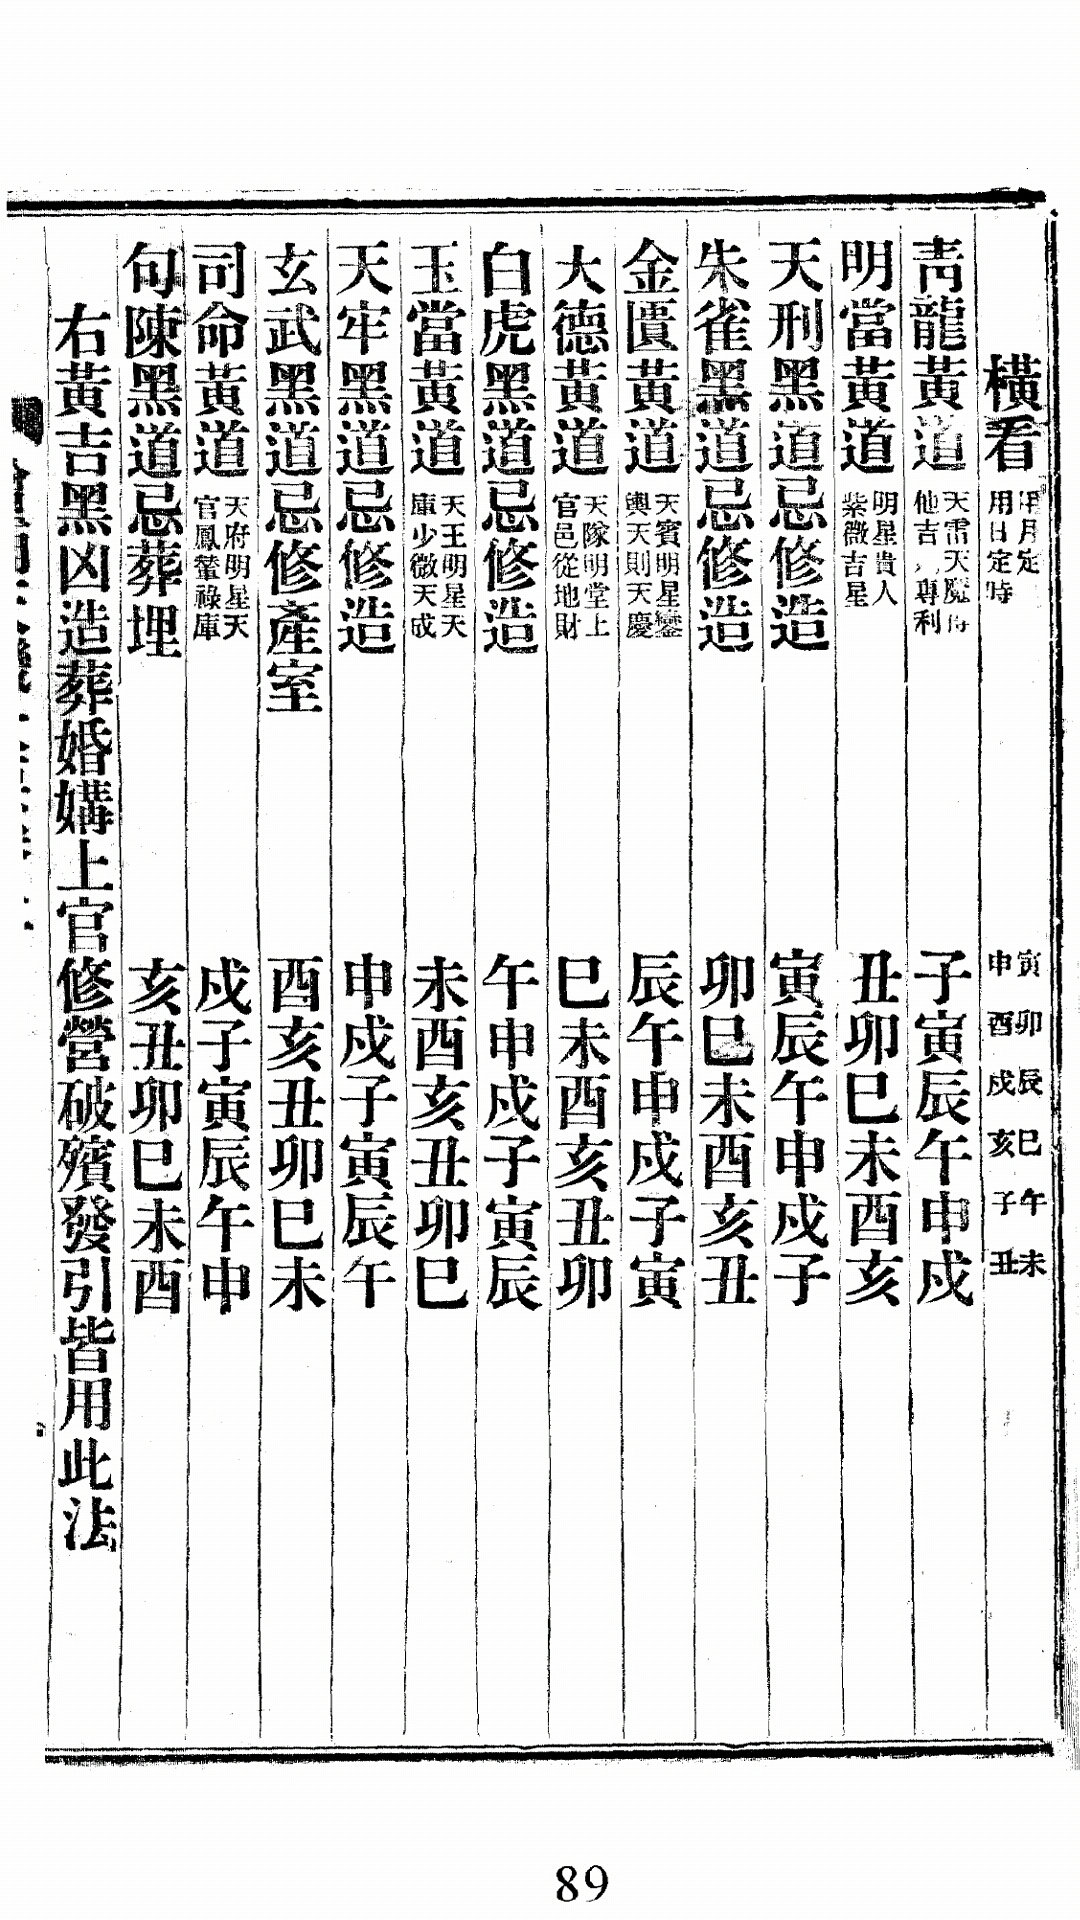 橫看 用月定 用日定時 寅卯辰巳午未 申酉戍亥子丑
靑龍黃道 天雷天魔 他吉 專利 子寅辰午申戍
明當黃道 明星貴人 紫微吉星 丑卯巳未酉亥
天刑黑道忌修造 寅辰午申戍子
朱雀黑道忌修造 卯巳未酉亥丑
金匱黃道 天賓明星鑾 輿天則天慶 辰午申戍子寅
大德黃道 天隊明堂上 官邑從地財 巳未酉亥丑卯
白虎黑道忌修造 午申戍子寅辰
玉當黃道 天王明星天 庫少微天成 未酉亥丑卯巳
天牢黑道忌修造 申戍子寅辰午
玄武黑道忌修產室 酉亥丑卯巳未
司命黃道 天府明星天 官鳳輦祿庫 戍子寅辰午申
句陳黑道忌葬埋 亥丑卯巳未酉
右黃吉黑凶造葬婚媾上官修營破殯發引皆用此法
89